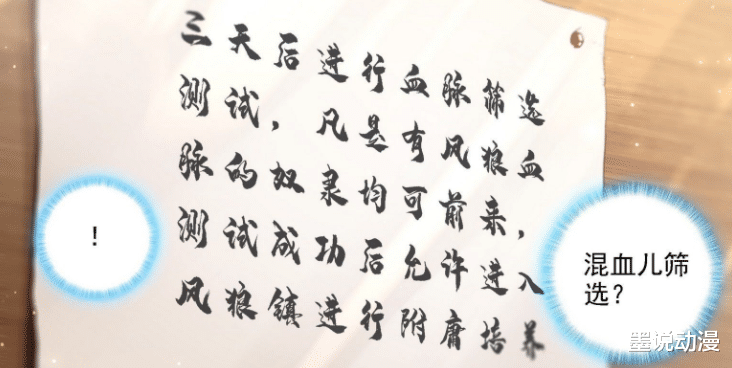 三天后进行血脉筛选
测试，凡是有风狼血
脉的奴隶均可前来，
测试成功后允许进入
风狼镇进行附庸培养
！
混血儿筛
选？
墨说动漫